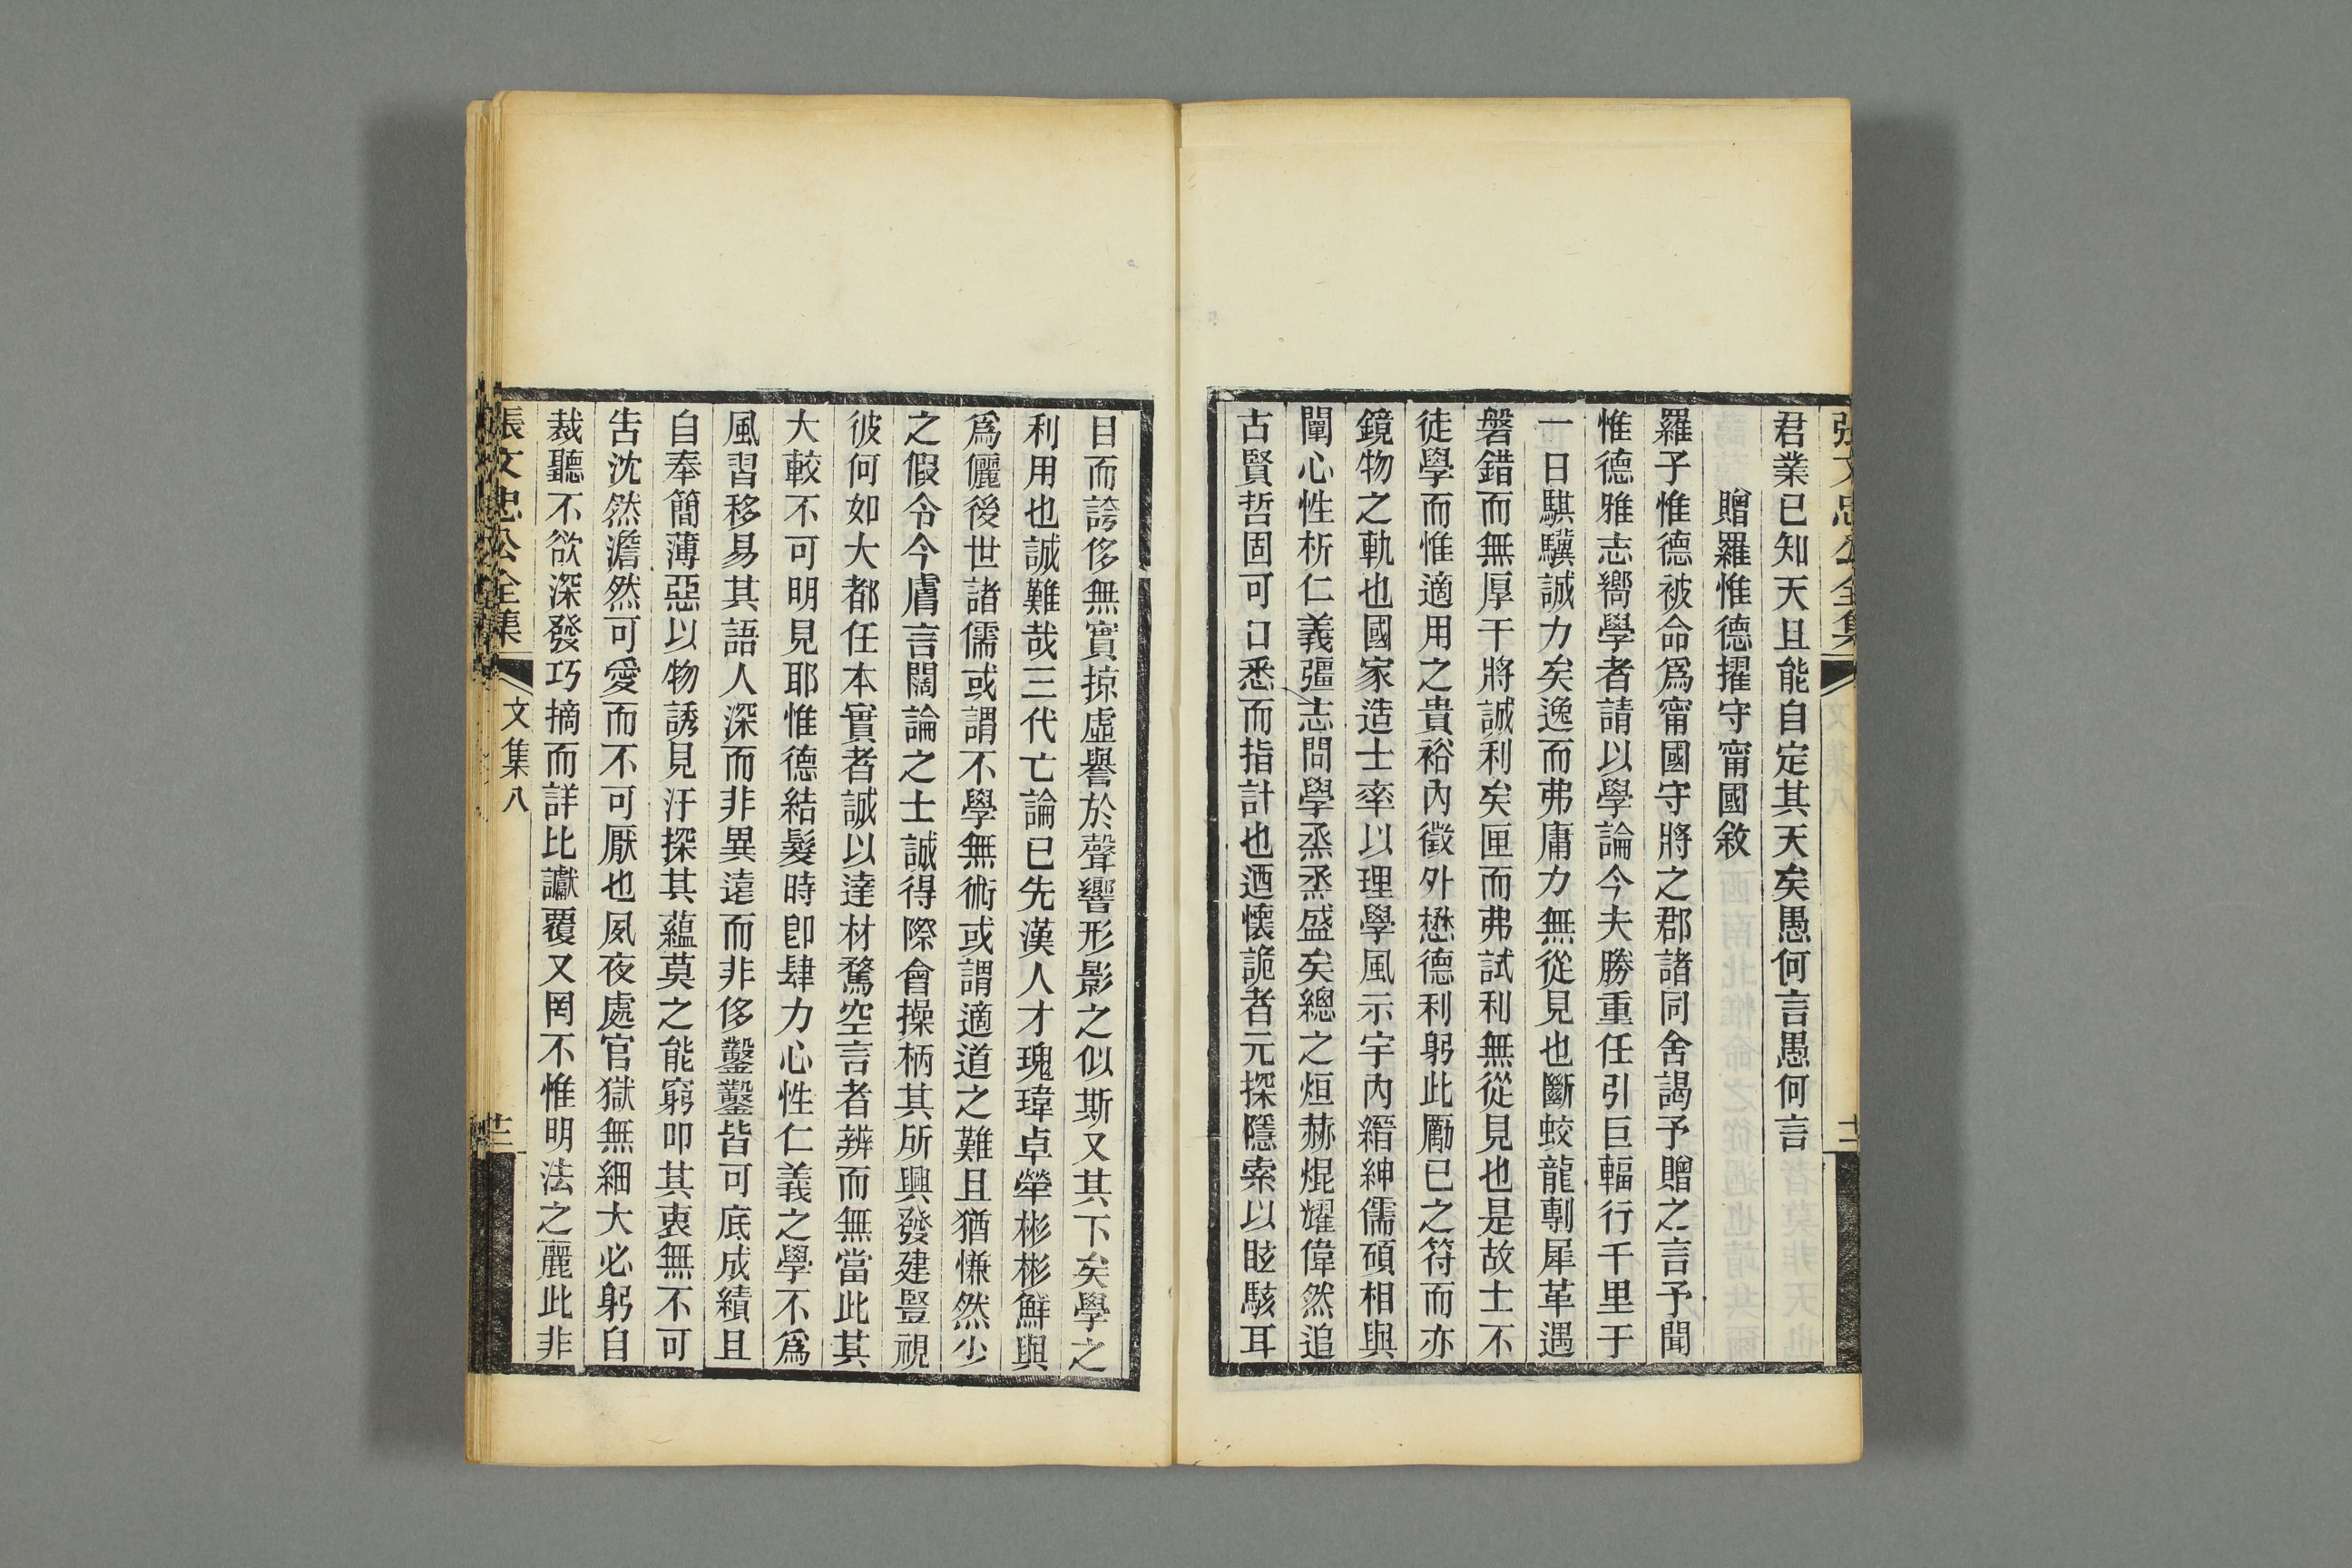 張文忠公全集
十二
君業已知天且能自定其天矣愚何言愚何言
贈羅惟德擢守甯國敘
羅子惟德被命爲甯國守將之郡諸同舍謁予贈之言予聞
惟德雅志嚮學者請以學論今夫勝重任引巨輻行千里于
一日騏驥誠力矣逸而弗庸力無從見也斷蛟龍剸犀革遇
磐錯而無厚干將誠利矣匣而弗試利無從見也是故士不
徒學而惟適用之貴裕內徵外懋德利躬此勵己之符而亦
鏡物之軌也國家造士率以理學風示宇內縉紳儒碩相與
闡心性析仁義彊志問學烝烝盛矣總之烜赫焜耀偉然追
古賢哲固可口悉而指計也迺懷詭者元探隱索以眩駭耳
目而誇侈無實掠虛譽於聲響形影之似斯又其下矣學之
利用也誠難哉三代亡論已先漢人才瑰瑋卓犖彬彬鮮與
爲儷後世諸儒或謂不學無術或謂適道之難且猶慊然少
之假令今膚言闊論之士誠得際會操柄其所興發建豎視
彼何如大都任本實者誠以達材騖空言者辨而無當此其
大較不可明見耶惟德結髮時卽肆力心性仁義之學不爲
風習移易其語人深而非異遠而非侈鑿鑿皆可底成績且
自奉簡薄惡以物誘見汙探其蘊莫之能窮叩其衷無不可
告沈然澹然可愛而不可厭也夙夜處官獄無細大必躬自
裁聽不欲深發巧摘而詳比讞覆又罔不惟明法之麗此非
張文忠公全集
文集八